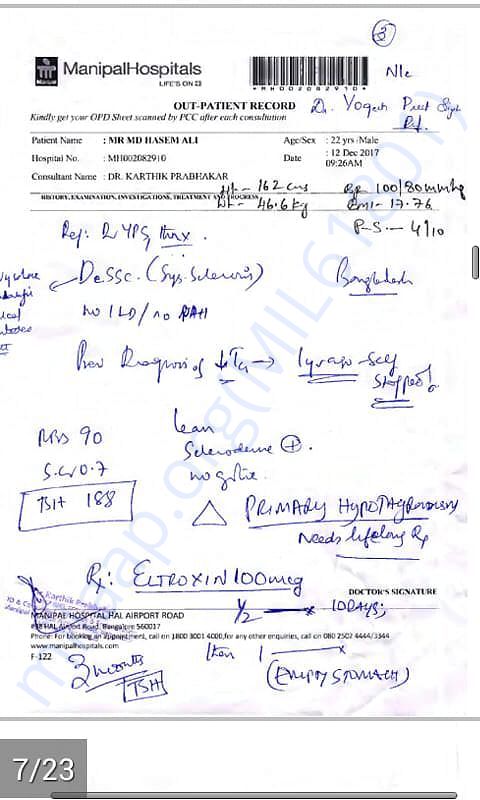 3
ManipalHospitals
LIFE'S ON
*MH002082910*
Nle
OUT-PATIENT RECORD
Kindly get your OPD Sheet scanned by PCC after each consultation
Dr. Yogesh Preet Singh
Ref.
Patient Name : MR MD HASEM ALI Age/Sex : 22 yrs /Male
Hospital No. : MH002082910 Date : 12 Dec 2017
09:26AM
Consultant Name : DR. KARTHIK PRABHAKAR
Ht - 162 cms BP 100/80 mmHg
HISTORY, EXAMINATION, INVESTIGATIONS, TREATMENT AND PROGRESS
Wt - 46.6 kg BMI - 17.76
P-S - 4/10
Ref: Dr YPS, thnx.
DcSSc. (Sys. Sclerosis) Bangladesh
no ILD/ no PAH
Prev Diagnosis of ↓T4 → 1 yr ago - self
stopped!
RBS 90
S.Cr 0.7
TSH 188
lean
Scleroderma +.
no goitre.
△ PRIMARY HYPOTHYROIDISM
Needs lifelong Rx
Rx: ELTROXIN 100mcg
DOCTOR'S SIGNATURE
1/2 x 10 DAYS;
MANIPAL HOSPITAL HAL AIRPORT ROAD
#98 HAL Airport Road, Bangalore 560017
Phone: For booking an appointment, call on 1800 3001 4000, for any other enquiries, call on 080 2502 4444/3344
www.manipalhospitals.com
F-122
then 1 x
3 months
TSH
(EMPTY STOMACH)
7/23